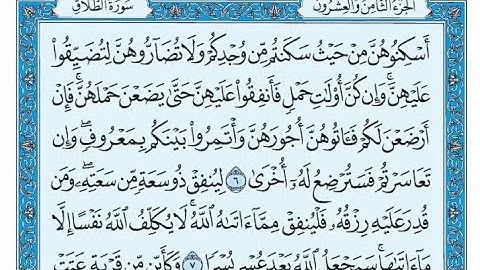 الجزء الثامن والعشرون سورة الطلاق
أَسْكِنُوهُنَّ مِنْ حَيْثُ سَكَنتُم مِّن وُجْدِكُمْ وَلَا تُضَآرُّوهُنَّ لِتُضَيِّقُوا۟
عَلَيْهِنَّ ۚ وَإِن كُنَّ أُو۟لَٰتِ حَمْلٍ فَأَنفِقُوا۟ عَلَيْهِنَّ حَتَّىٰ يَضَعْنَ حَمْلَهُنَّ ۚ فَإِنْ
أَرْضَعْنَ لَكُمْ فَـَٔاتُوهُنَّ أُجُورَهُنَّ وَأْتَمِرُوا۟ بَيْنَكُم بِمَعْرُوفٍ ۖ وَإِن
تَعَاسَرْتُمْ فَسَتُرْضِعُ لَهُۥٓ أُخْرَىٰ ٦ لِيُنفِقْ ذُو سَعَةٍ مِّن سَعَتِهِۦ ۖ وَمَن
قُدِرَ عَلَيْهِ رِزْقُهُۥ فَلْيُنفِقْ مِمَّآ ءَاتَىٰهُ ٱللَّهُ ۚ لَا يُكَلِّفُ ٱللَّهُ نَفْسًا إِلَّا
مَآ ءَاتَىٰهَا ۚ سَيَجْعَلُ ٱللَّهُ بَعْدَ عُسْرٍ يُسْرًا ٧ وَكَأَيِّن مِّن قَرْيَةٍ عَتَتْ